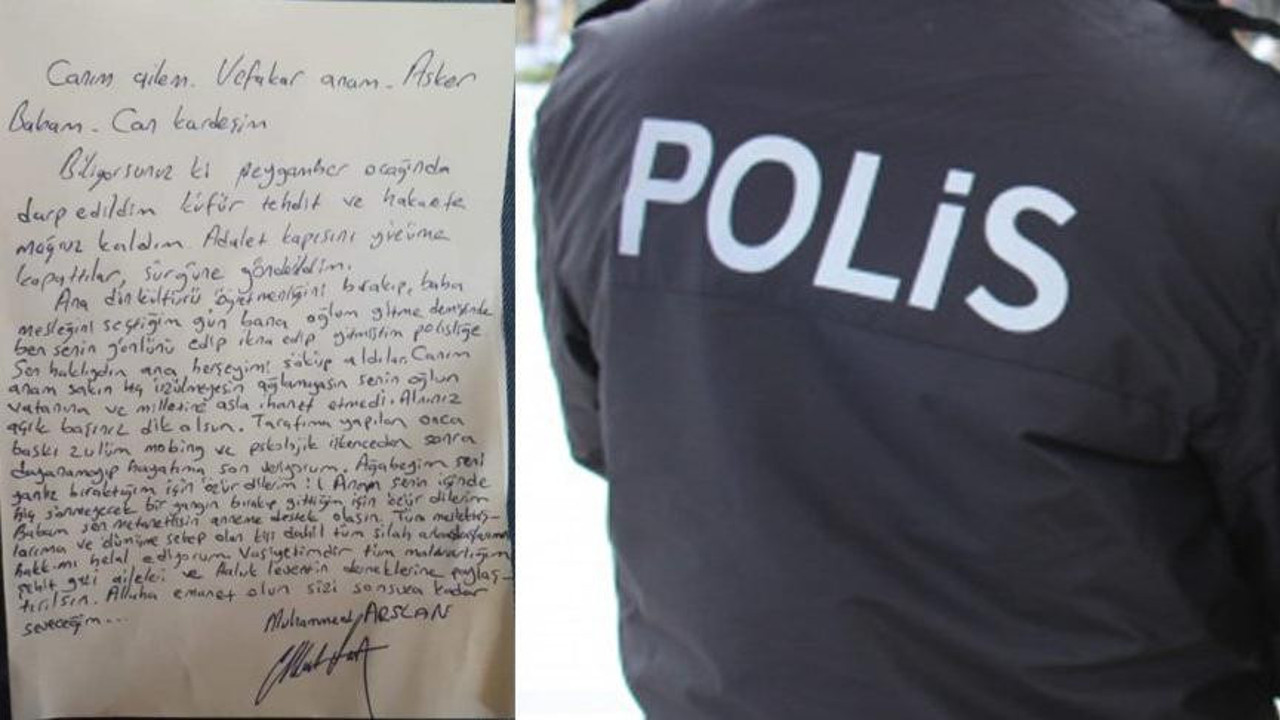 Canım ailem. Vefakar anam. Asker
Babam. Can kardeşim
Biliyorsunuz ki peygamber ocağında
darp edildim küfür tehdit ve hakarete
mağruz kaldım. Adalet kapısını yüzüme
kapattılar, sürgüne gönderildim.
Ana din kültürü öğretmenliğini bırakıp, baba
mesleğini seçtiğim gün bana oğlum gitme demiştin de
ben senin gönlünü edip ikna edip gitmiştim polisliğe
Sen haklıydın ana herşeyimi söküp aldılar. Canım
anam sakın hiç üzülmeyesin ağlamayasın senin oğlun
vatanına ve milletine asla ihanet etmedi. Alnınız
açık başınız dik olsun. Tarafıma yapılan onca
baskı zulüm mobing ve pskolojik işkenceden sonra
dayanamayıp hayatıma son veriyorum. Ağabeyim seni
yanlız bıraktığım için özür dilerim !( Anam senin içinde
hiç sönmeyecek bir yangın bırakıp gittiğim için özür dilerim
Babam sen metanetlisin anneme destek olasın. Tüm meslektaş-
larıma ve ölümüme sebep olan kişi dahil tüm silah arkadaşlarıma
hakkımı helal ediyorum. Vasiyetimdir tüm malvarlığım
şehit gazi aileleri ve Haluk leventin derneklerine paylaş-
tırılsın. Allaha emanet olun sizi sonsuza kadar
seveceğim...
Muhammed ARSLAN
POLİS